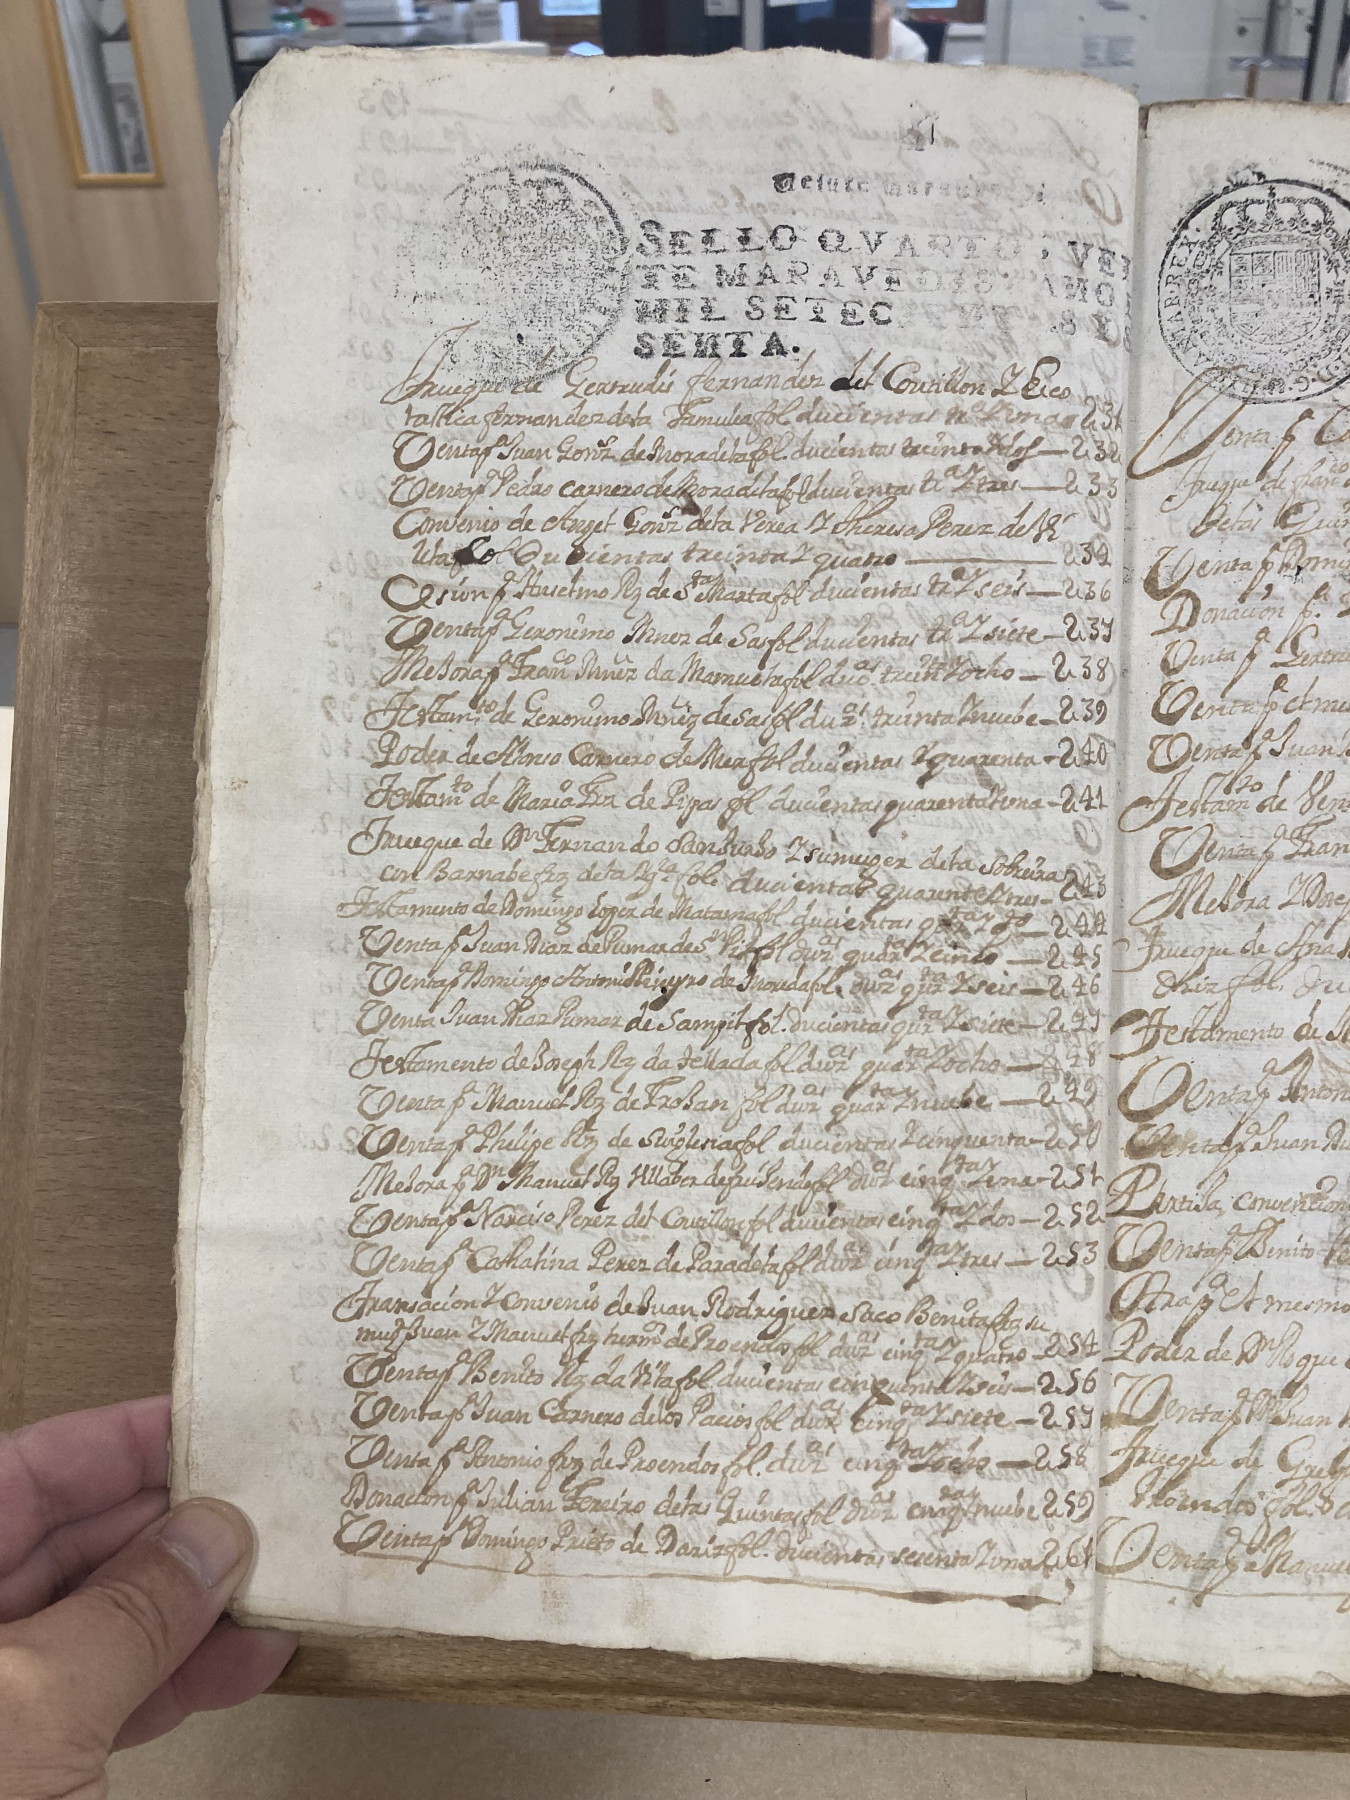 Veinte marauedis
SELLO QVARTO, VE
TE MARAVEDIS, AÑO
MIL SETEC
SENTA.
Trueque de Gertrudis fernandez del Coutillon Y Esco
lastica fernandez dela Famulea fol ducientas tta Y una 231
Venta pr Juan Gonz de Moradela fol. ducientas treinta Y dos — 232
Venta pr Pedro Carnero de Moradela fol ducientas tta Y tres — 233
Convenio de Angel Gonz dela Verea Y Theresa Perez de Vi
lela fol Ducientas treinta Y quatro — 234
Cesion pr Anselmo Rz de Sta Marta fol ducientas tta Y seis — 236
Venta pr Geronimo Nuez de Sas fol ducientas tta Y siete — 237
Mejora pr Franco Nuñez da Mamuela fol ducas treinta Y ocho — 238
Testamto de Geronimo Nuñez de Sas fol duas treinta Y nuebe — 239
Poder de Alonso Carnero de Mer fol ducientas Y quarenta — 240
Testamto de Maria Frz de Pipas fol ducientas quarenta Y una — 241
Trueque de Dn Fernando Sanjurjo Y sumuger dela Sobreira
con Barnabe frz dela Iga fol. ducientas quarenta Y tres — 243
Testamento de Domingo Lopez de Matama fol ducientas qrta Y qo — 244
Venta pr Juan Diaz de Pumar de Sn Pil fol duzas quarta Y cinco — 245
Venta pr Domingo Antonio Pineyro de Moreda fol. duzas qrta Y seis — 246
Venta Juan Diaz Pumar de Sampil fol. ducientas qrta Y siete — 247
Testamento de Joseph Rz da Tellada fol duzas quarta Y ocho — 248
Venta pr Manuel Rz de Trojan fol duzas quarta Y nuebe — 249
Venta pr Phelipe Rz de Suiglesia fol ducientas Y cinquenta — 250
Mejora pr Dn Manuel Rz Villabor de freijende fol duzas cinqta Y una — 251
Venta pr Narciso Perez del Coutillon fol ducientas cinqta Y dos — 252
Venta pr Cathalina Perez de Paradela fol duzas cinqta Y tres — 253
Transacion Y Convenio de Juan Rodriguez Saco Benita frz su
mugr Juan Y Manuel frz hermos de Proendos fol duzas cinqta Y quatro — 254
Venta pr Benito Rz da Vila fol ducientas cinquenta Y seis — 256
Venta pr Juan Carnero delos Pacios fol duzas cinqta Y siete — 257
Venta pr Antonio frz de Proendos fol. duzas cinqta Y ocho — 258
Donacion pr Julian Fereiro delas Quintas fol duzas cinqta Y nuebe 259
Venta pr Domingo Prieto de Dariz fol. ducientas secenta Y una 261
Venta pr
Trueque de
delas Quin
Venta pr Domin
Donacion pr
Venta pr Gertru
Venta pr el mes
Venta pr Juan
Testamto de Ven
Venta pr Fran
Mejora Y
Trueque de Ana
Testamento de
Venta pr Antoni
Venta pr Juan
Partija, convencion
Venta pr Benito
Otra pr el mesmo
Poder de Dn Roque
Venta pr Dn Juan
Trueque de Greg
Venta pr Manuel